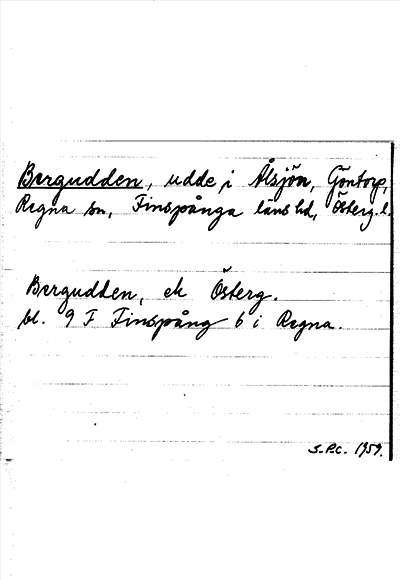 Bergudden, udde i Ålsjön, Göntorp,
Regna sn, Finspånga läns hd, Österg. l.
Bergudden, ek Österg.
bl. 9 F Finspång 6 i Regna.
S.P.C. 1959.